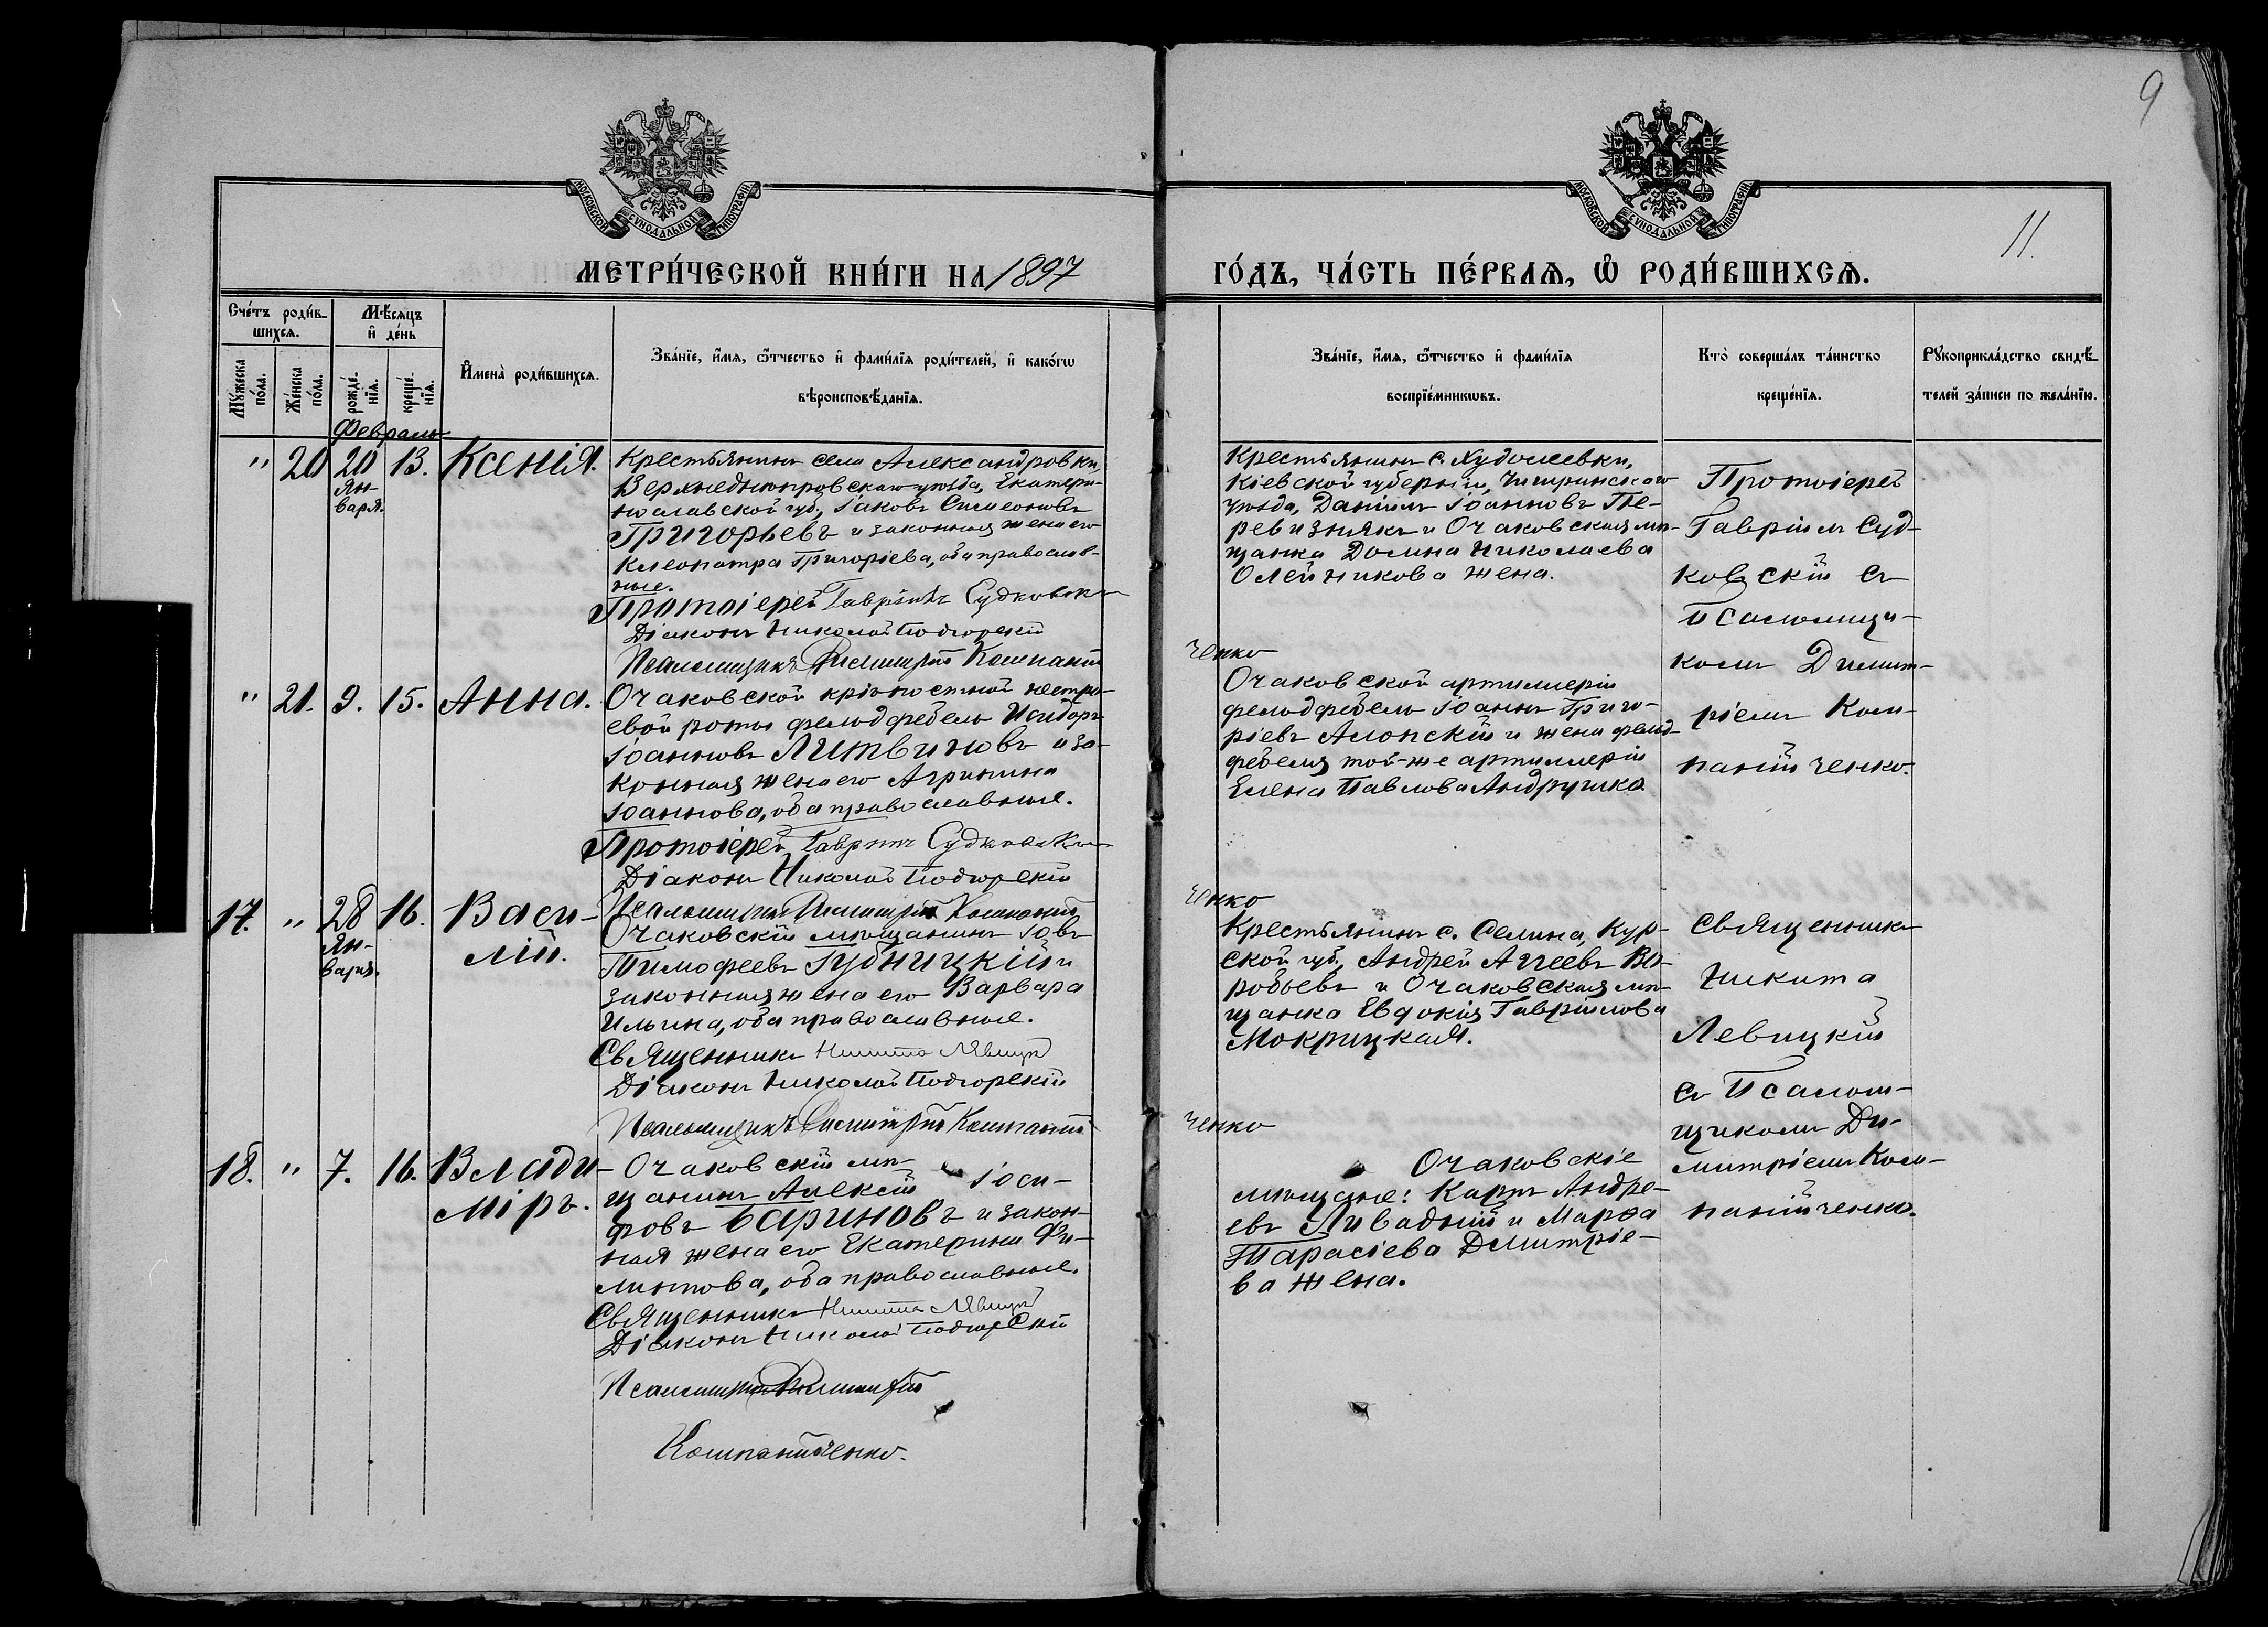 9
11.
МОСКОВСКОЙ СѴНОДАЛЬНОЙ ТИПОГРАФІИ
МОСКОВСКОЙ СѴНОДАЛЬНОЙ ТИПОГРАФІИ
МЕТРИ́ЧЕСКОЙ КНИ́ГИ НА 1897
ГО́ДЪ, ЧА́СТЬ ПЕ́РВАѦ, Ѡ҆ РОДИ́ВШИХСѦ.
Сче́тъ роди́в-
шихсѧ.
Мѣ́сѧцъ
и҆ де́нь
Мꙋ́жеска
по́ла.
Же́нска
по́ла.
рожде́-
нїѧ.
креще́-
нїѧ.
И҆мена̀ роди́вшихсѧ.
Зва́нїе, и҆́мѧ, ѻ҆́тчество и҆ фами́лїѧ роди́телей, и҆ како́гѡ
вѣроисповѣ́данїѧ.
Зва́нїе, и҆́мѧ, ѻ҆́тчество и҆ фами́лїѧ
воспрїе́мникѡвъ.
Кто̀ соверша́лъ та́инство
креще́нїѧ.
Рꙋкоприкла́дство свидѣ́-
телей за́писи по жела́нїю.
Февраль
" 20 20 13. Ксенія.
Ян-
варя.
Крестьянинъ села Александровки,
Верхнеднѣпровскаго уѣзда, Екатери-
нославской губ., Іаковъ Симеоновъ
Григорьевъ и законная жена его
Клеопатра Григоріева, оба православ-
ные.
Протоіерей Гавріилъ Судковскій
Діаконъ Николай Подгорскій
Псаломщикъ Димитрій Компаній
Крестьянинъ с. Худолеевки,
Кіевской губерніи, Чигиринскаго
уѣзда, Даніилъ Іоанновъ Пе-
ревизнякъ и Очаковская мѣ-
щанка Домна Николаева
Олейникова жена.
ченко
Протоіерей
Гавріилъ Суд-
ковскій съ
Псаломщи-
комъ Димит-
ріемъ Ком-
панійченко.
" 21. 9. 15. Анна.
Очаковской крѣпостной нестро-
евой роты фельдфебель Исидоръ
Іоанновъ Литвиновъ и за-
конная жена его Агрипина
Іоаннова, оба православные.
Протоіерей Гавріилъ Судковскій
Діаконъ Николай Подгорскій
Псаломщикъ Димитрій Компаній
Очаковской артиллеріи
фельдфебель Іоаннъ Григо-
ріевъ Алопскій и жена фельд-
фебеля той-же артиллеріи
Елена Павлова Андрущко
ченко
17. " 28 16. Васи-
лій.
Ян-
варя.
Очаковскій мѣщанинъ Іовъ
Тимофеевъ Губницкій и
законная жена его Варвара
Ильина, оба православные.
Священникъ Никита Левицкій
Діаконъ Николай Подгорскій
Псаломщикъ Димитрій Компаній
Крестьянинъ с. Селина, Кур-
ской губ., Андрей Агеевъ Во-
робьевъ и Очаковская мѣ-
щанка Евдокія Гавріилова
Мокрицкая.
ченко
Священникъ
Никита
Левицкій
съ Псалом-
щикомъ Ди-
митріемъ Ком-
панійченко.
18. " 7. 16. Влади-
міръ.
Очаковскій мѣ-
щанинъ Алексій Іоси-
фовъ Бариновъ и закон-
ная жена его Екатерина Фи-
липова, оба православные.
Священникъ Никита Левицкій
Діаконъ Николай Подгорскій
Псаломщикъ Димитрій
Компанійченко.
Очаковскіе
мѣщане: Карпъ Андре-
евъ Ливадній и Марѳа
Тарасіева Дмитріе-
ва жена.